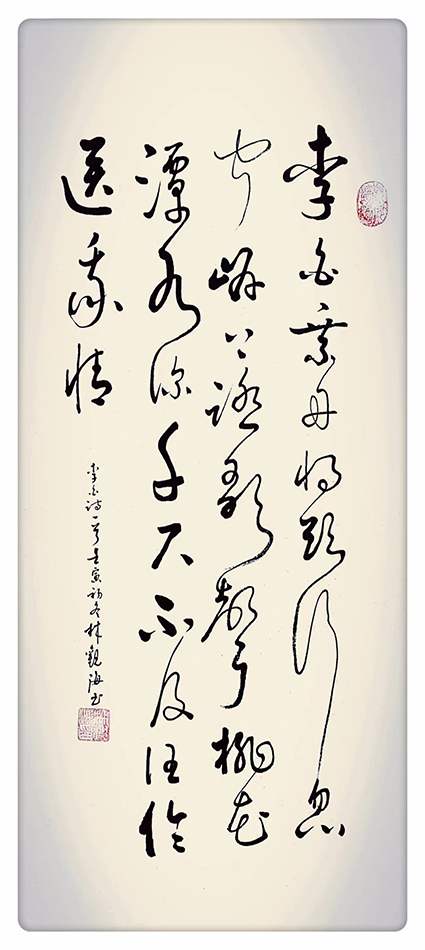 李白乘舟将欲行忽
闻岸上踏歌声桃花
潭水深千尺不及汪伦
送我情
李白诗一首壬寅初冬林观海书